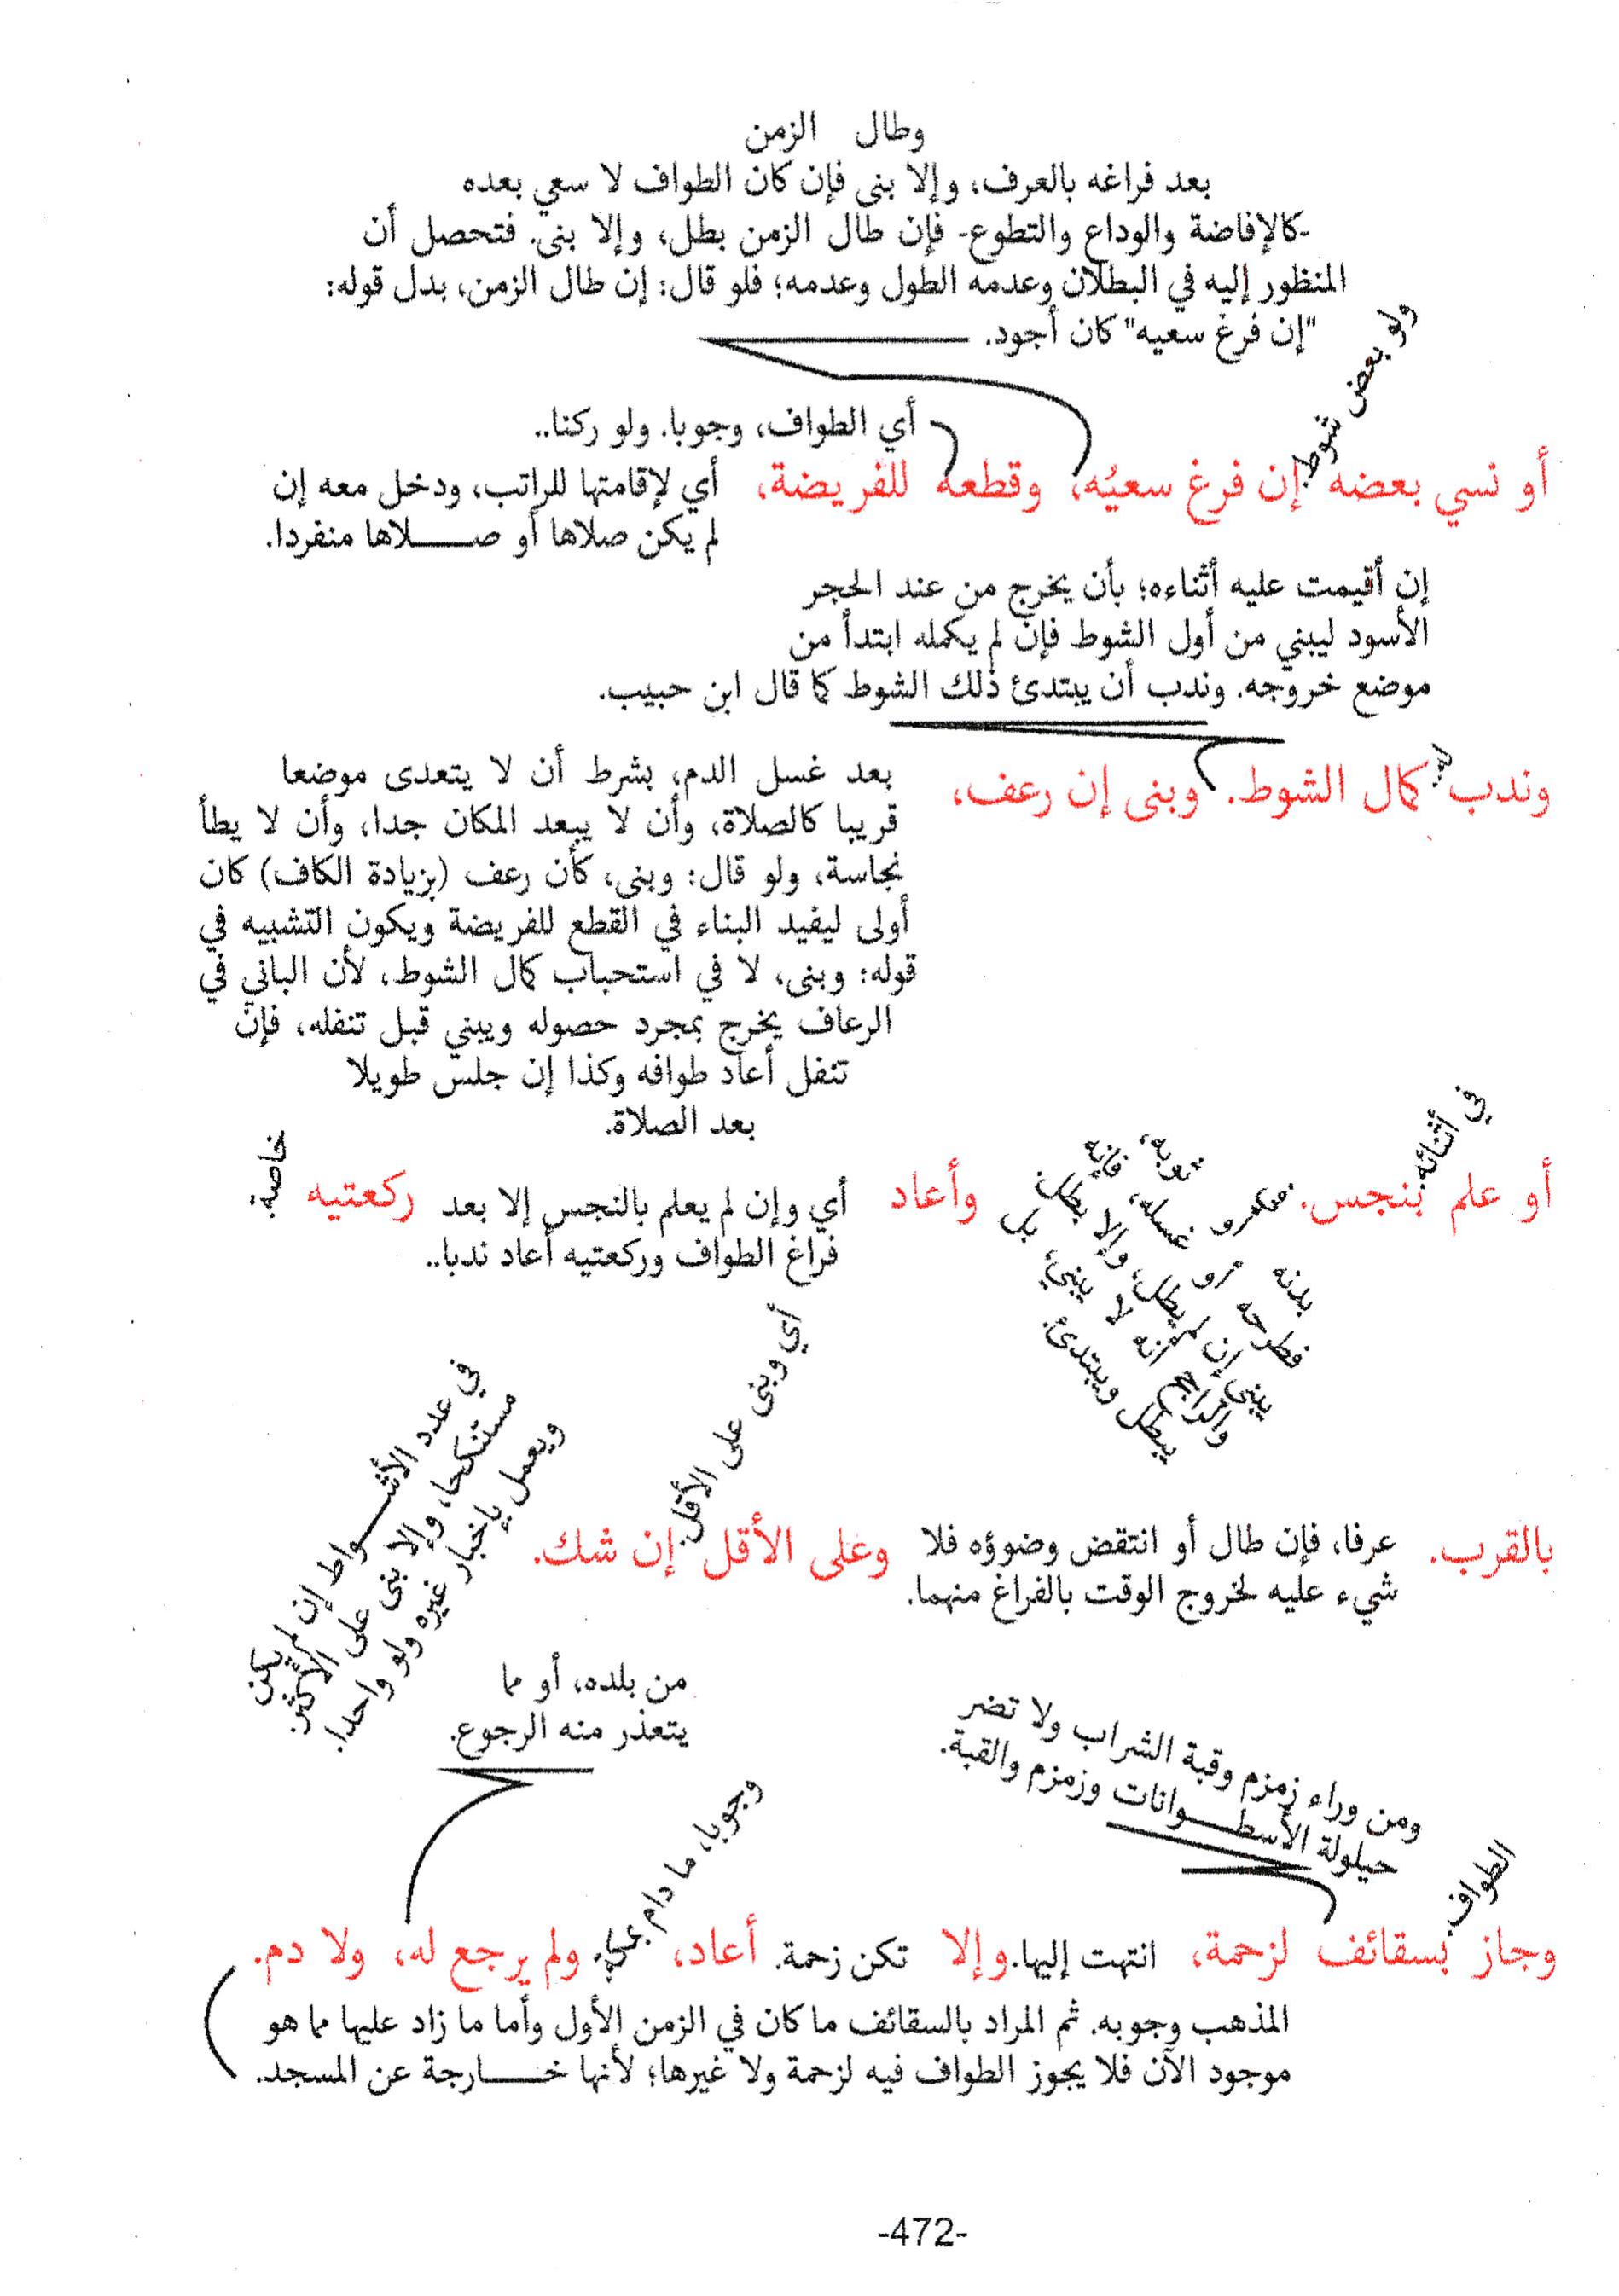 وطال الزمن
بعد فراغه بالعرف، وإلا بنى فإن كان الطواف لا سعي بعده
-كالإفاضة والوداع والتطوع- فإن طال الزمن بطل، وإلا بنى. فتحصل أن
المنظور إليه في البطلان وعدمه الطول وعدمه؛ فلو قال: إن طال الزمن، بدل قوله:
"إن فرغ سعيه" كان أجود.
ولو بعض شوط.
أي الطواف، وجوبا. ولو ركنا..
أو نسي بعضه إن فرغ سعيُه، وقطعه للفريضة،
أي لإقامتها للراتب، ودخل معه إن
لم يكن صلاها أو صلاها منفردا.
إن أقيمت عليه أثناءه؛ بأن يخرج من عند الحجر
الأسود ليبني من أول الشوط فإن لم يكمله ابتدأ من
موضع خروجه. وندب أن يبتدئ ذلك الشوط كما قال ابن حبيب.
له..
وندب كمال الشوط. وبنى إن رعف،
بعد غسل الدم، بشرط أن لا يتعدى موضعا
قريبا كالصلاة، وأن لا يبعد المكان جدا، وأن لا يطأ
نجاسة، ولو قال: وبنى، كأن رعف (بزيادة الكاف) كان
أولى ليفيد البناء في القطع للفريضة ويكون التشبيه في
قوله: وبنى، لا في استحباب كمال الشوط، لأن الباني في
الرعاف يخرج بمجرد حصوله ويبني قبل تنفله، فإن
تنفل أعاد طوافه وكذا إن جلس طويلا
بعد الصلاة.
في أثنائه.
أو علم بنجس.
بدنه أو ثوبه،
فطرحه أو غسله، فإنه
يبني إن لم يطل، وإلا بطل
والراجح أنه لا يبني، بل
يبطل ويبتدئ.
وأعاد
أي وإن لم يعلم بالنجس إلا بعد
فراغ الطواف وركعتيه أعاد ندبا..
ركعتيه
خاصة.
بالقرب.
عرفا، فإن طال أو انتقض وضوؤه فلا
شيء عليه لخروج الوقت بالفراغ منهما.
أي وبنى على الأقل.
وعلى الأقل إن شك.
في عدد الأشواط إن لم يكن
مستنكحا، وإلا بنى على الأكثر.
ويعمل بإخبار غيره ولو واحدا.
من بلده، أو مما
يتعذر منه الرجوع.
ومن وراء زمزم وقبة الشراب ولا تضر
حيلولة الأسطوانات وزمزم والقبة.
الطواف
وجوبا، ما دام بمكة.
وجاز بسقائف لزحمة، انتهت إليها. وإلا تكن زحمة. أعاد، ولم يرجع له، ولا دم.
المذهب وجوبه. ثم المراد بالسقائف ما كان في الزمن الأول وأما ما زاد عليها مما هو
موجود الآن فلا يجوز الطواف فيه لزحمة ولا غيرها؛ لأنها خارجة عن المسجد.
-472-